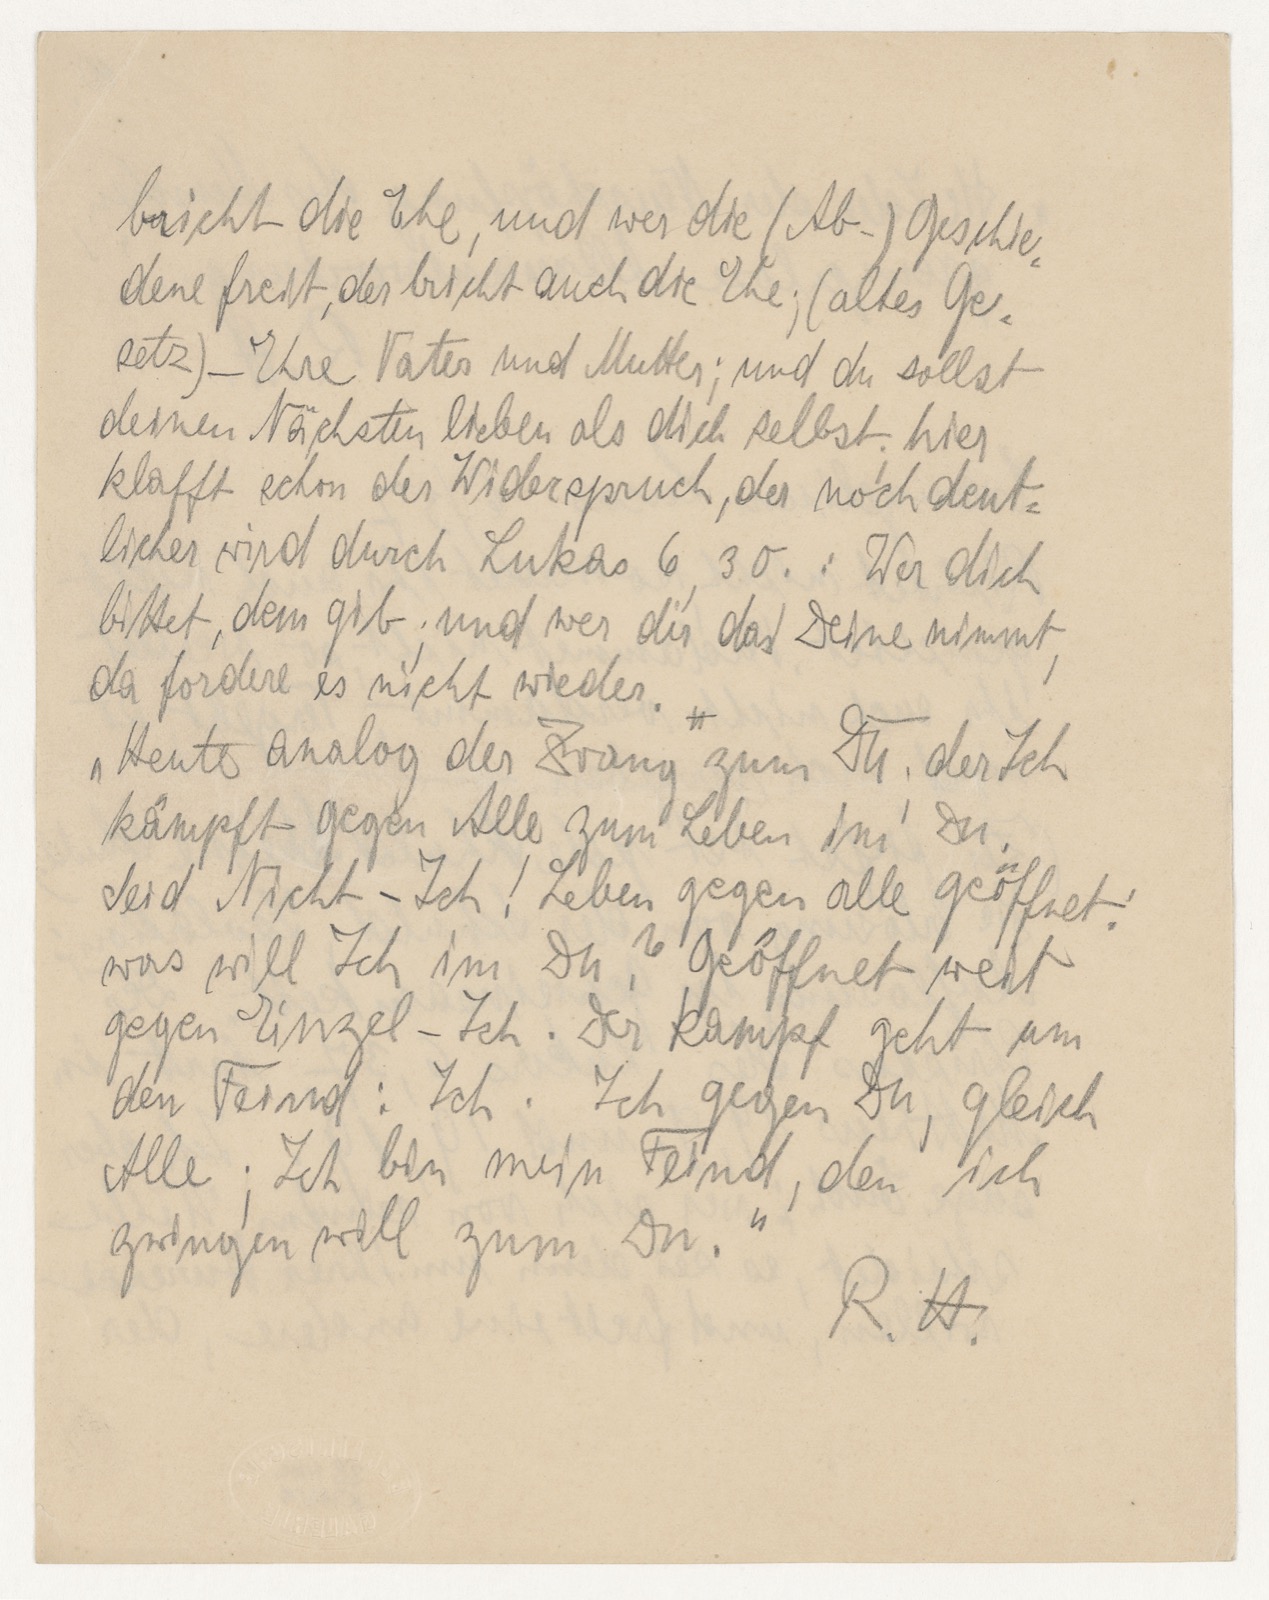 bricht die Ehe, und wer die (Ab-) Geschie-
dene freit, der bricht auch die Ehe; (altes Ge-
setz) – Ehre Vater und Mutter; und du sollst
deinen Nächsten lieben als dich selbst. hier
klafft schon der Widerspruch, der noch deut-
licher wird durch Lukas 6, 30. : Wer dich
bittet, dem gib; und wer dir das Deine nimmt,
da fordere es nicht wieder.
„Heute analog der Zwang" zum DU, der Ich
kämpft gegen Alle zum Leben im Du.
Seid Nicht-Ich! Leben gegen alle geöffnet!
was will Ich im Du? Geöffnet weit
gegen Einzel-Ich. Der Kampf geht um
den Feind: Ich. Ich gegen Du, gleich
Alle; Ich bin mein Feind, den ich
zwingen will zum Du."
R. H.